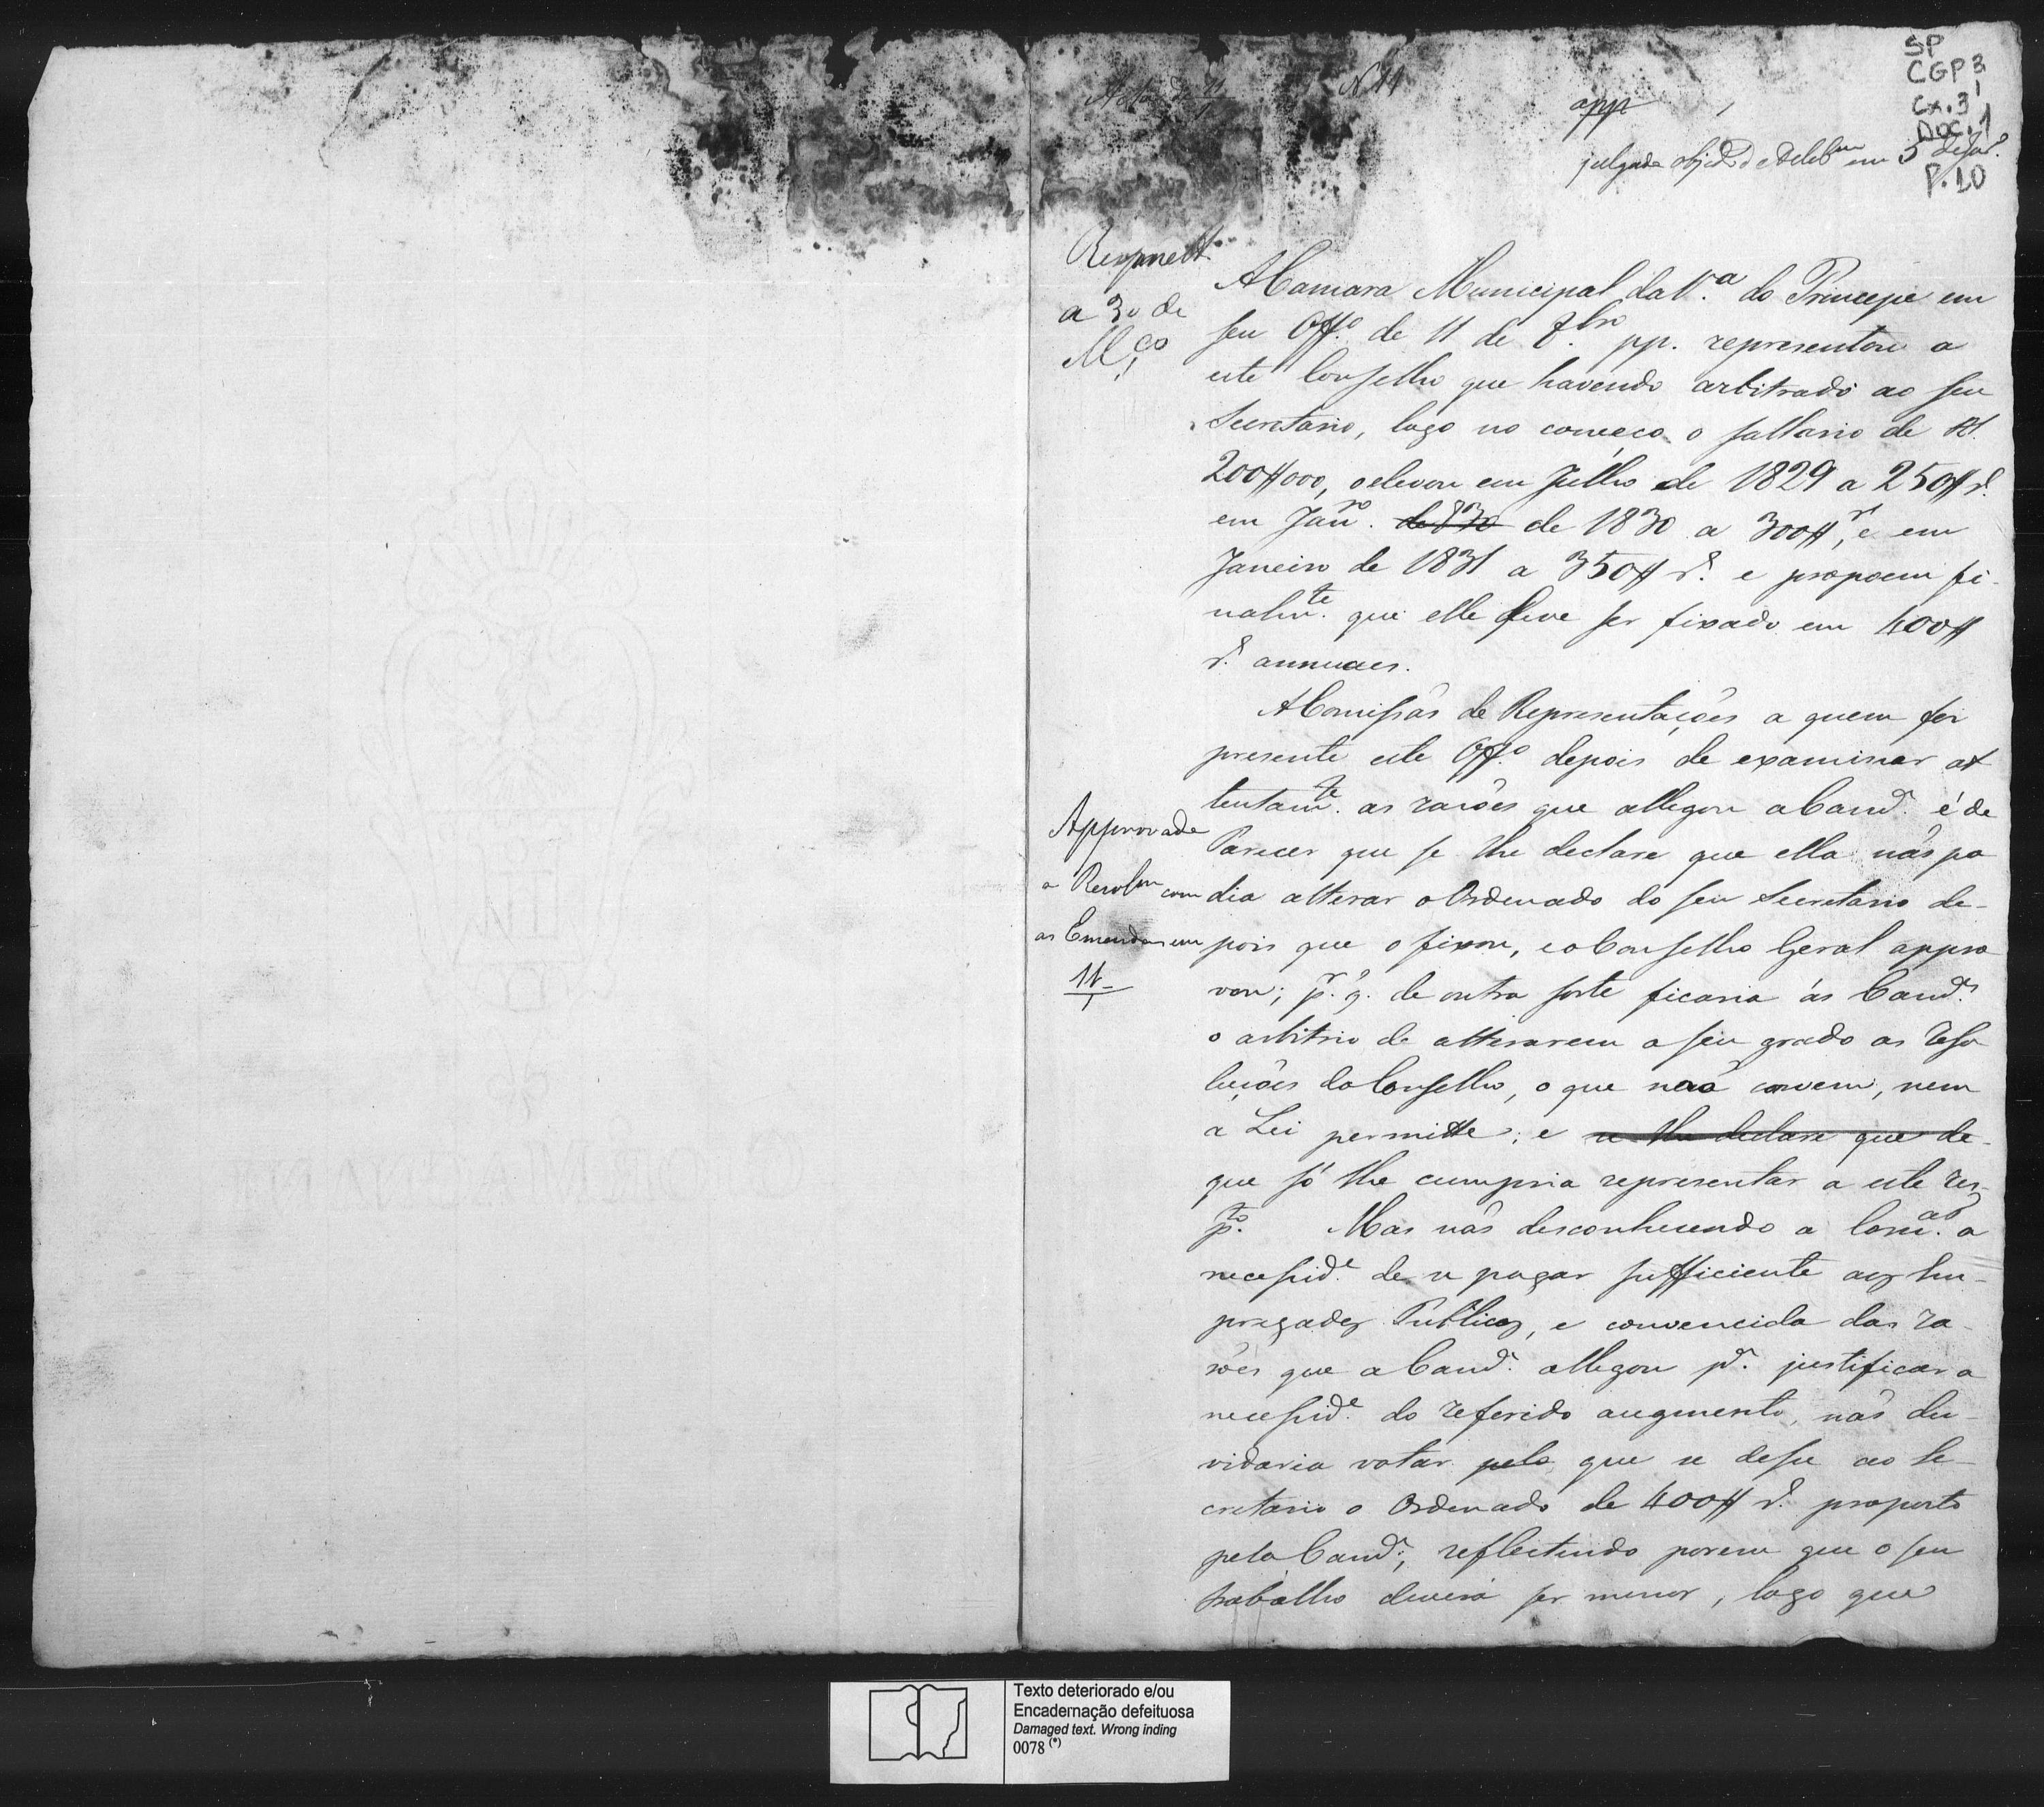 SP
CGP 3
Cx.31
DOC.1
P.10
N 11
app
julgada objecto de Delibm em 5 de Jan.o
Respondt.
a 30 de
M.ço
A Camara Municipal da V.a do Principe em
seu Off.o de 11 de 7.bro pp. representou a
este Conselho que havendo arbitrado ao seu
Secretario, logo no começo o sallario de Rs.
200$000, o elevou em Julho de 1829 a 250$ r.s
em Janr.o de 830 de 1830 a 300$ r.s, e em
Janeiro de 1831 a 350$ r.s e propoem fi-
nalm.te que elle deve ser fixado em 400$
r.s annuaes.
A Comissão de Representações a quem foi
presente este Off.o depois de examinar at
tentam.te as rasões que allegou a Camr.a é de
Parecer que se lhe declare que ella não po
dia alterar o Ordenado do seu Secretario de-
pois que o fixou, e o Conselho Geral appro
vou; p.r q. de outra sorte ficaria ás Camr.as
o arbitrio de alterarem a seu grado as Reso
luções do Conselho, o que não convem, nem
a Lei permitte; e se lhe declare que de-
que só lhe cumpria representar a este res-
p.to. Mas não desconhecendo a Com.ão a
necessid.e de se pagar sufficiente aos Em-
pregados Publicos, e convencida das ra-
sões que a Camr.a allegou p.a justificar a
necessid.e do referido augmento, não du-
vidaria votar pelo que se desse ao Se-
cretario o Ordenado de 400$ r.s proposto
pela Camr.a; reflectindo porem que o seu
trabalho deverá ser menor, logo que
Approvada
a Resolm com
as Emendas em
11
1
Texto deteriorado e/ou
Encadernação defeituosa
Damaged text. Wrong inding
0078 (*)